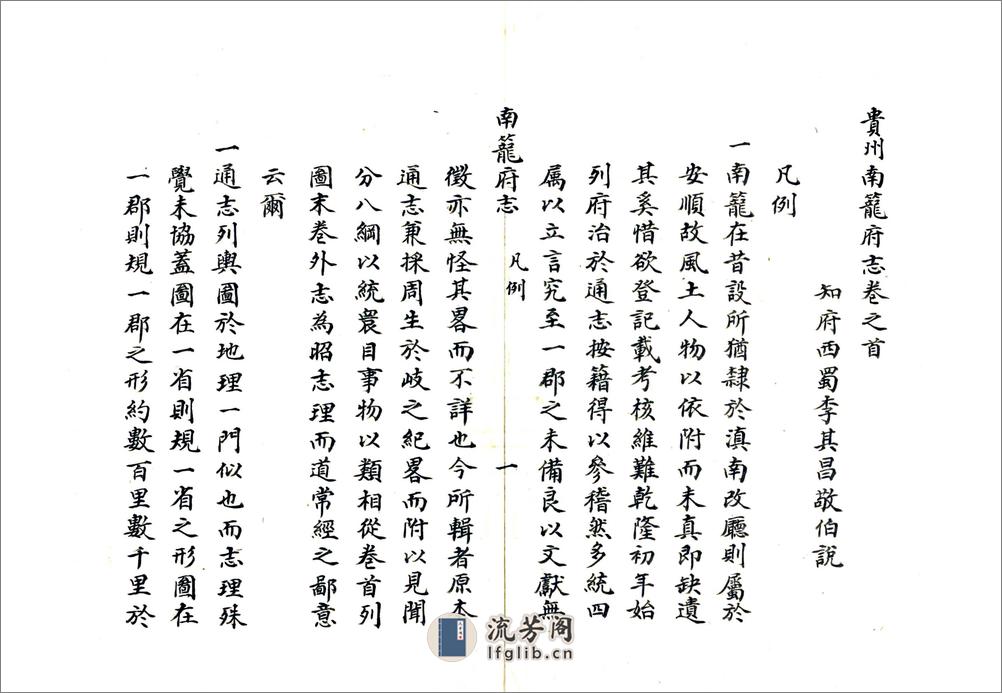 貴州南籠府志卷之首
知府西蜀李其昌敬伯說
凡例
一南籠在昔設所猶隸於滇南改廳則屬於
安順故風土人物以依附而未真即缺遺
其奚惜欲登記載考核維難乾隆初年始
列府治於通志按籍得以參稽然多統四
属以立言究至一郡之未備良以文獻無
南籠府志
凡例
一
徵亦無怪其畧而不詳也今所輯者原本
通志兼採周生於岐之紀畧而附以見聞
分八綱以統裹目事物以類相從卷首列
圖末卷外志為昭志理而道常經之鄙意
云爾
一通志列輿圖於地理一門似也而志理殊
覺未協蓋圖在一省則規一省之形圖在
一郡則規一郡之形約數百里數千里於
流芳阁
lfglib.cn